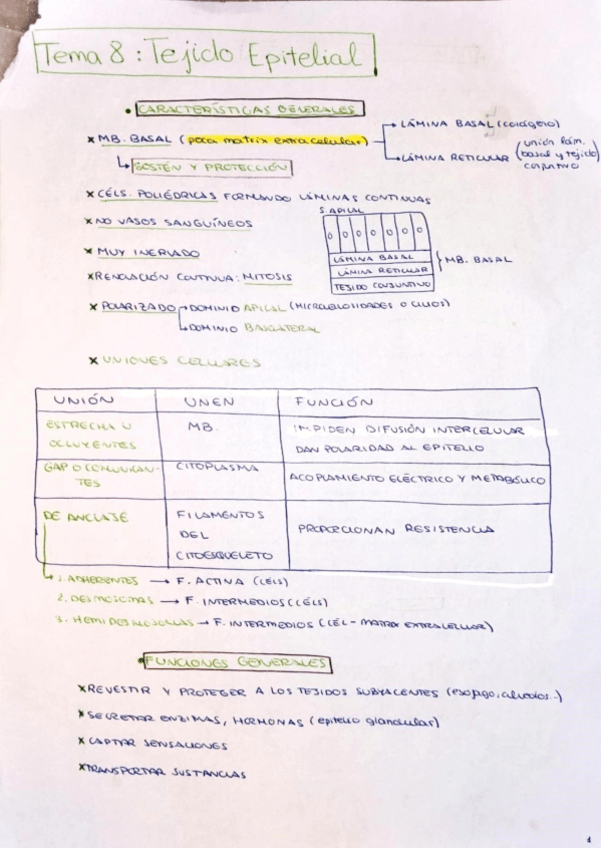 Tema 8: Tejido Epitelial
• CARACTERÍSTICAS GENERALES
x MB. BASAL (poca matrix extracelular)
LÁMINA BASAL (colágeno)
LÁMINA RETICULAR (unión lám.
basal y tejido
conjuntivo)
SOSTÉN Y PROTECCIÓN
x CÉLS. POLIÉDRICAS FORMANDO LÁMINAS CONTINUAS
x NO VASOS SANGUÍNEOS
x MUY INERVADO
x RENOVACIÓN CONTINUA: MITOSIS
S. APICAL
LÁMINA BASAL
LÁMINA RETICULAR
TEJIDO CONJUNTIVO
MB. BASAL
x POLARIZADO DOMINIO APICAL (MICROVELLOSIDADES O CILIOS)
DOMINIO BASOLATERAL
x UNIONES CELULARES
UNIÓN UNEN FUNCIÓN
ESTRECHA U
OCLUYENTES
MB.
IMPIDEN DIFUSIÓN INTERCELULAR
DAN POLARIDAD AL EPITELIO
GAP O COMUNICAN-
TES
CITOPLASMA
ACOPLAMIENTO ELÉCTRICO Y METABÓLICO
DE ANCLAJE
FILAMENTOS
DEL
CITOESQUELETO
PROPORCIONAN RESISTENCIA
1. ADHERENTES → F. ACTINA (CÉLS)
2. DESMOSOMAS → F. INTERMEDIOS (CÉLS)
3. HEMIDESMOSOMAS → F. INTERMEDIOS (CÉL - MATRIX EXTRACELULAR)
• FUNCIONES GENERALES
x REVESTIR Y PROTEGER A LOS TEJIDOS SUBYACENTES (esófago, alveolos...)
x SECRETAR ENZIMAS, HORMONAS (epitelio glandular)
x CAPTAR SENSACIONES
x TRANSPORTAR SUSTANCIAS